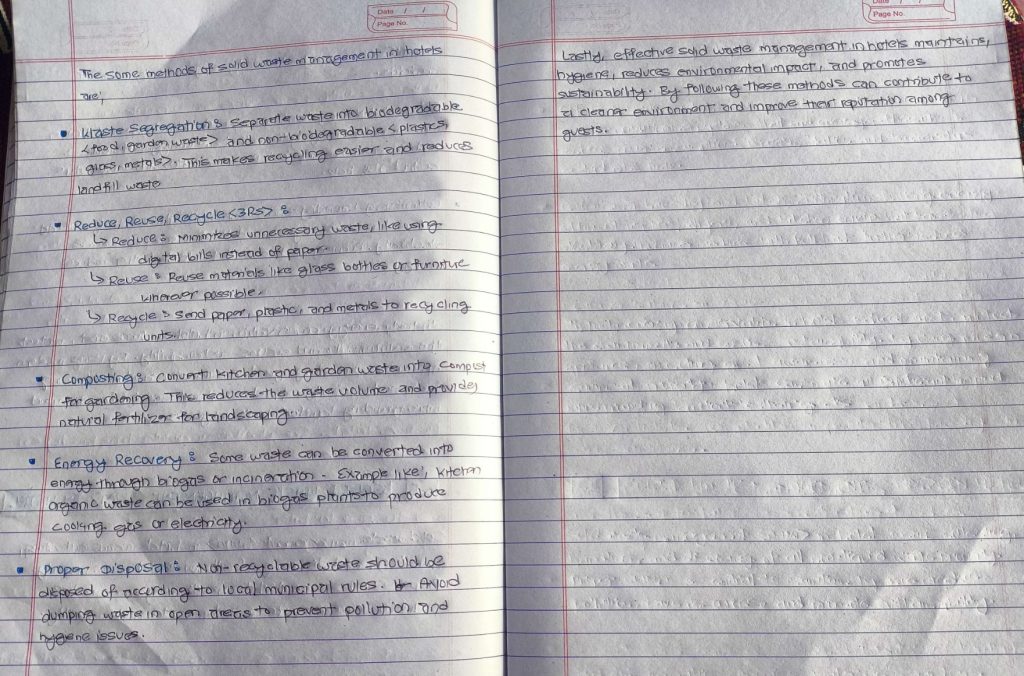 Date / /
Page No.
The some methods of solid waste management in hotels
are;
• Waste Segregation : Separate waste into biodegradable
<food, garden waste> and non-biodegradable <plastics,
glass, metals>. This makes recycling easier and reduces
landfill waste
• Reduce, Reuse, Recycle <3Rs> :
↳ Reduce : Minimizes unnecessary waste, like using
digital bills instead of paper.
↳ Reuse : Reuse materials like glass bottles or furniture
wherever possible.
↳ Recycle : Send paper, plastic, and metals to recycling
units.
• Composting : Convert kitchen and garden waste into compost
for gardening. This reduces the waste volume and provides
natural fertilizer for landscaping.
• Energy Recovery : Some waste can be converted into
energy through biogas or incineration. Example like, kitchen
organic waste can be used in biogas plants to produce
cooking gas or electricity.
• Proper Disposal : Non-recyclable waste should be
disposed of according to local municipal rules. Avoid
dumping waste in open areas to prevent pollution and
hygiene issues.
Date / /
Page No.
Lastly, effective solid waste management in hotels maintains,
hygiene, reduces environmental impact, and promotes
sustainability. By following these methods can contribute to
a cleaner environment and improve their reputation among
guests.